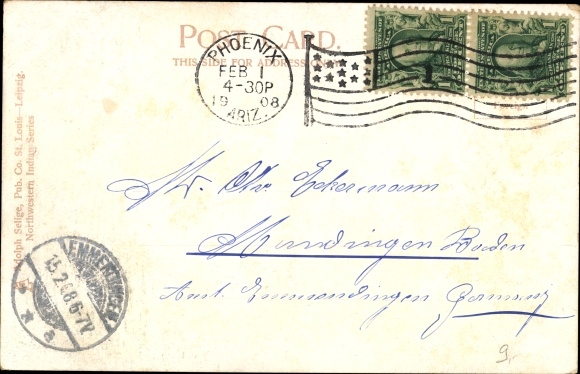 POST CARD.
THIS SIDE FOR ADDRESS ONLY.
PHOENIX
FEB 1
4-30P
1908
ARIZ.
1
Adolph Selige, Pub. Co. St. Louis—Leipzig.
Northwestern Indian Series
Mr. Eckermann
Mundingen Baden
Amt. Emmendingen Germany
EMMENDINGEN
15.2.08.6-7V
9.